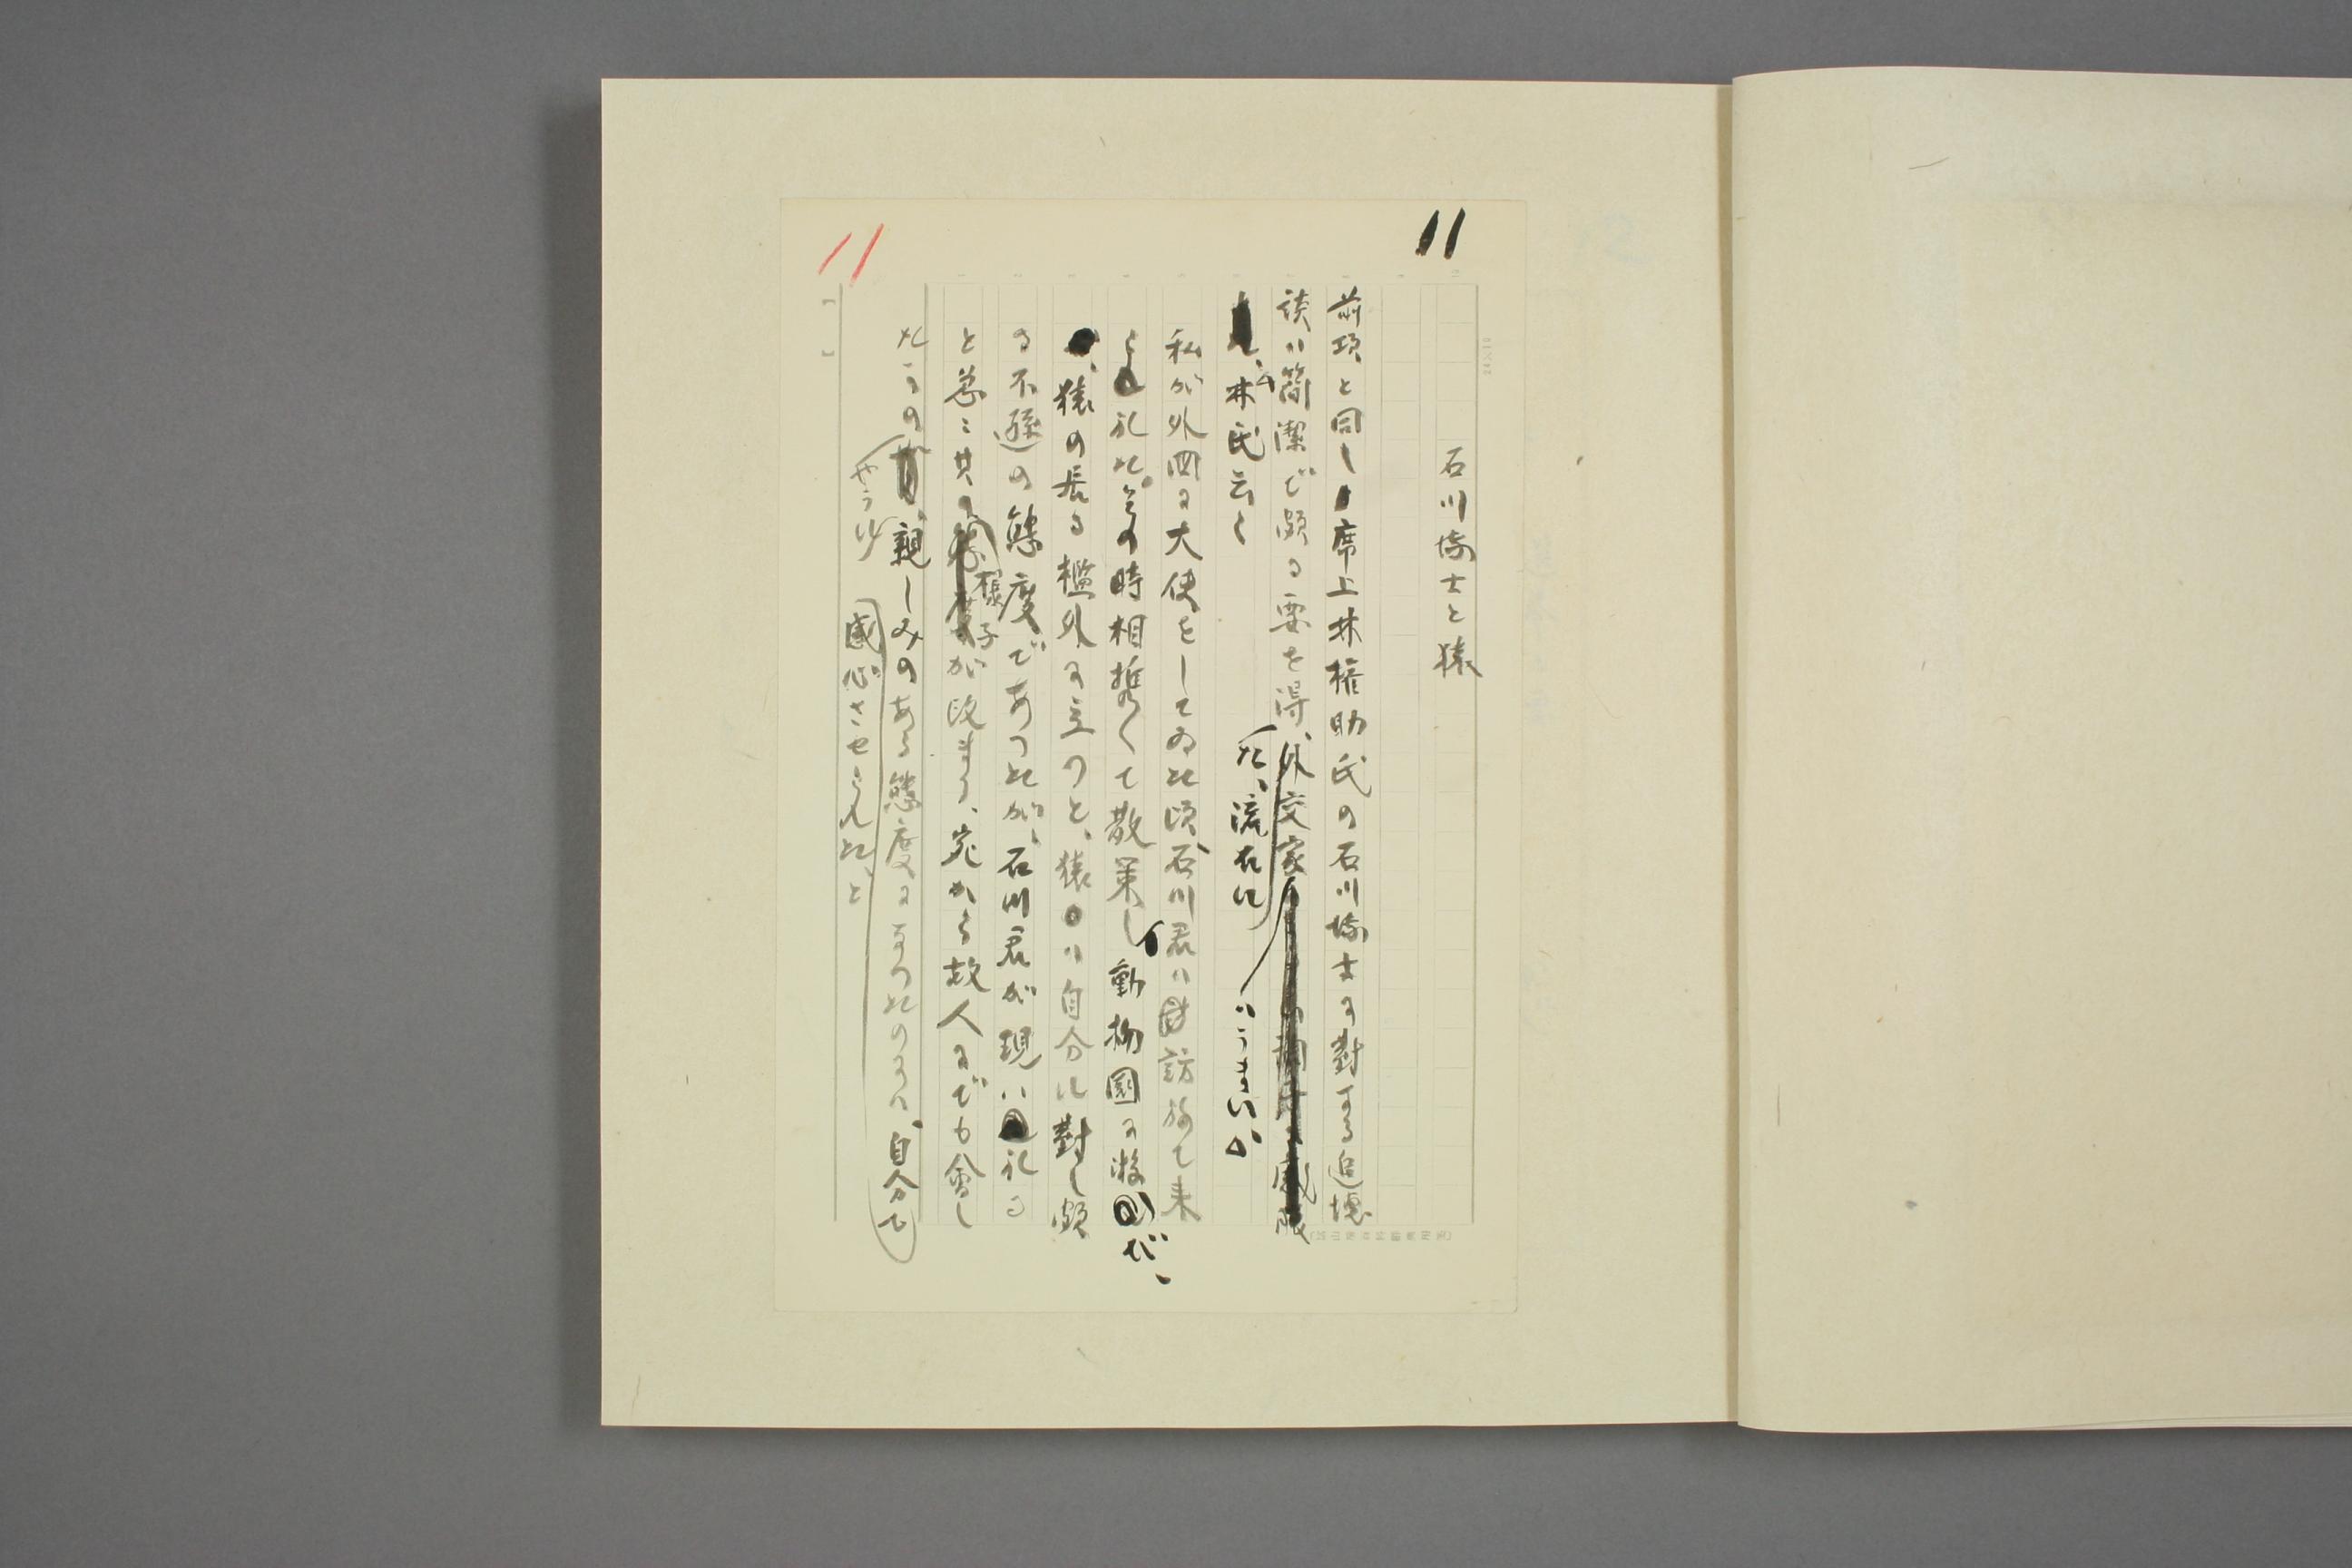 11
11
石川博士と猿
前項と同し席上林権助氏の石川博士に對する追懐
談ハ簡潔で頗る要を得、外交家
た、流石に
ハうまい。
林氏云く
私が外国に大使をしてゐた頃、石川君ハ訪ねて来
られた。その時相携へて散策し、動物園に遊び、
猿の居る檻外に立つと、猿ハ自分に對し頗
る不遜の態度であつたが、石川君が現ハれる
と忽ち其の様子が改まり、宛かも故人にでも會し
たやうの親しみのある態度になつたのになり、自分も
やうや
感心させられた、と